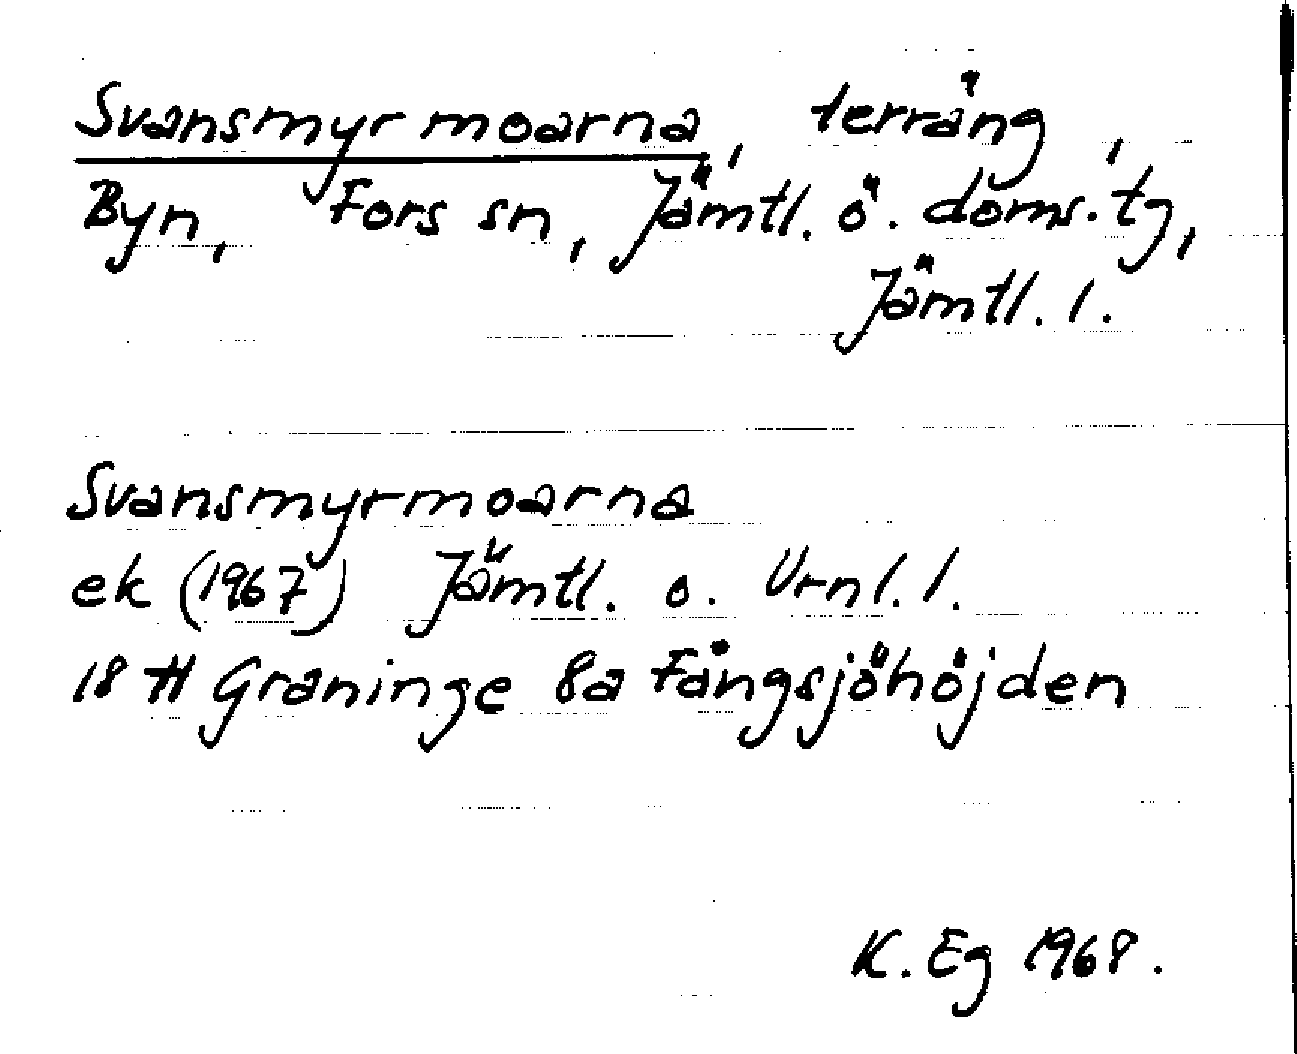 Svansmyrmoarna, terräng,
Byn, Fors sn, Jämtl. ö. doms. tg,
Jämtl. l.
Svansmyrmoarna
ek (1967) Jämtl. o. Vrnl. l.
18 H Graninge 8a Fångsjöhöjden
K. Eg 1968.